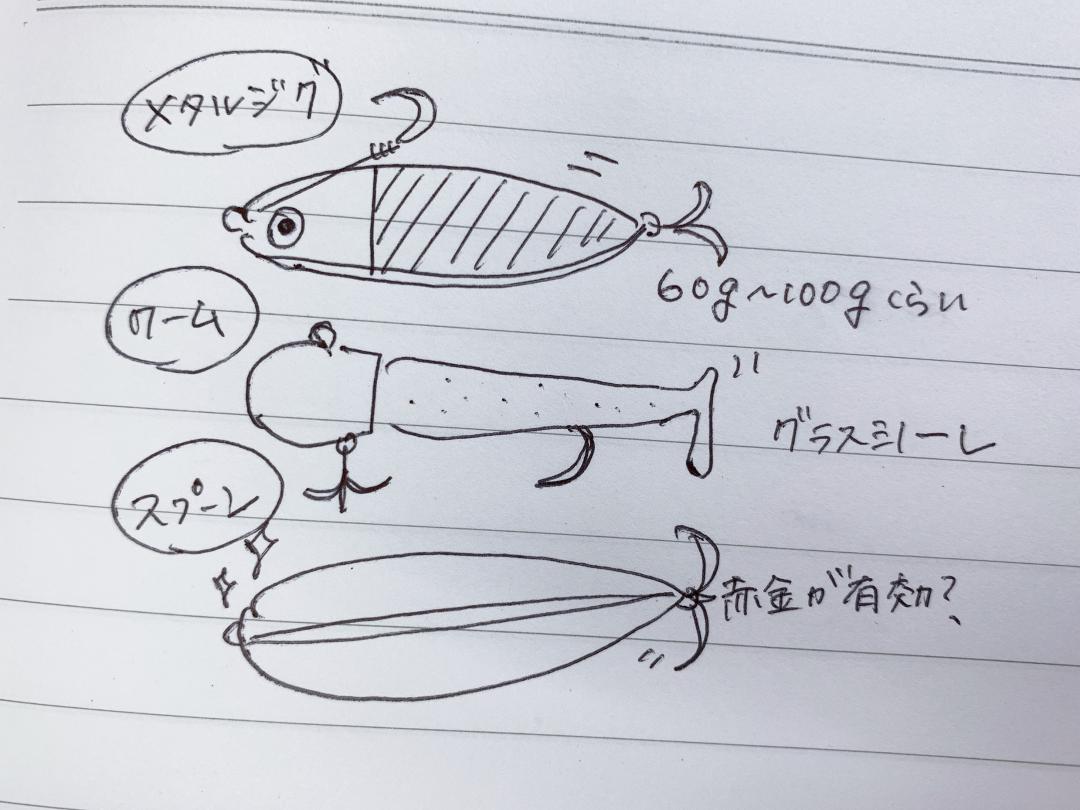 メタルジグ
60g~100gくらい
ワーム
グラスミノー L
スプーン
赤金が有効?